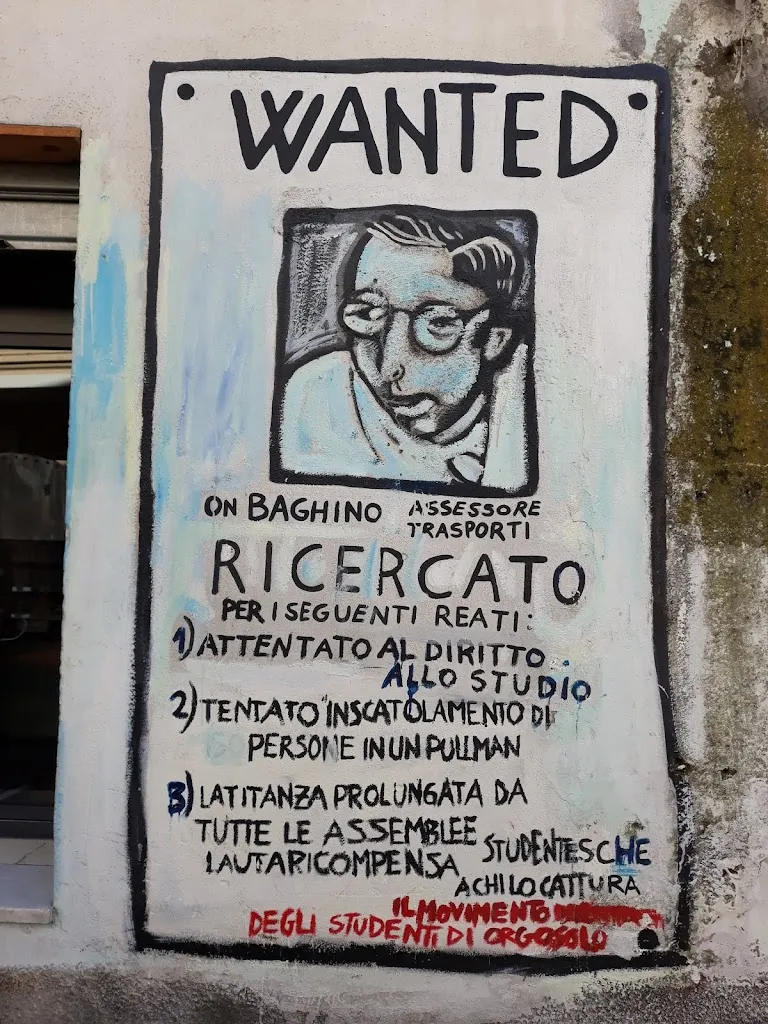 WANTED
ON BAGHINO ASSESSORE
TRASPORTI
RICERCATO
PER I SEGUENTI REATI:
1) ATTENTATO AL DIRITTO
ALLO STUDIO
2) TENTATO "INSCATOLAMENTO DI
PERSONE IN UN PULLMAN
3) LATITANZA PROLUNGATA DA
TUTTE LE ASSEMBLEE STUDENTESCHE
LAUTA RICOMPENSA
A CHI LO CATTURA
IL MOVIMENTO
DEGLI STUDENTI DI ORGOSOLO